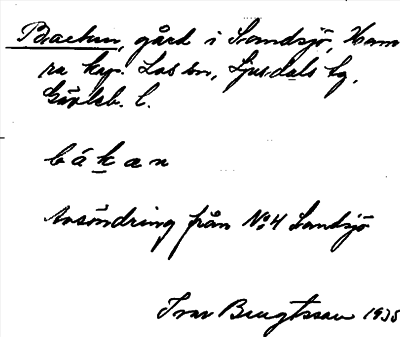 Backen, gård i Sandsjö, Ham
ra kap. Los sn, Ljusdals tg,
Gävleb. l.
båkan
Avsöndring från No 4 Sandsjö
Ivar Bengtsson 1935